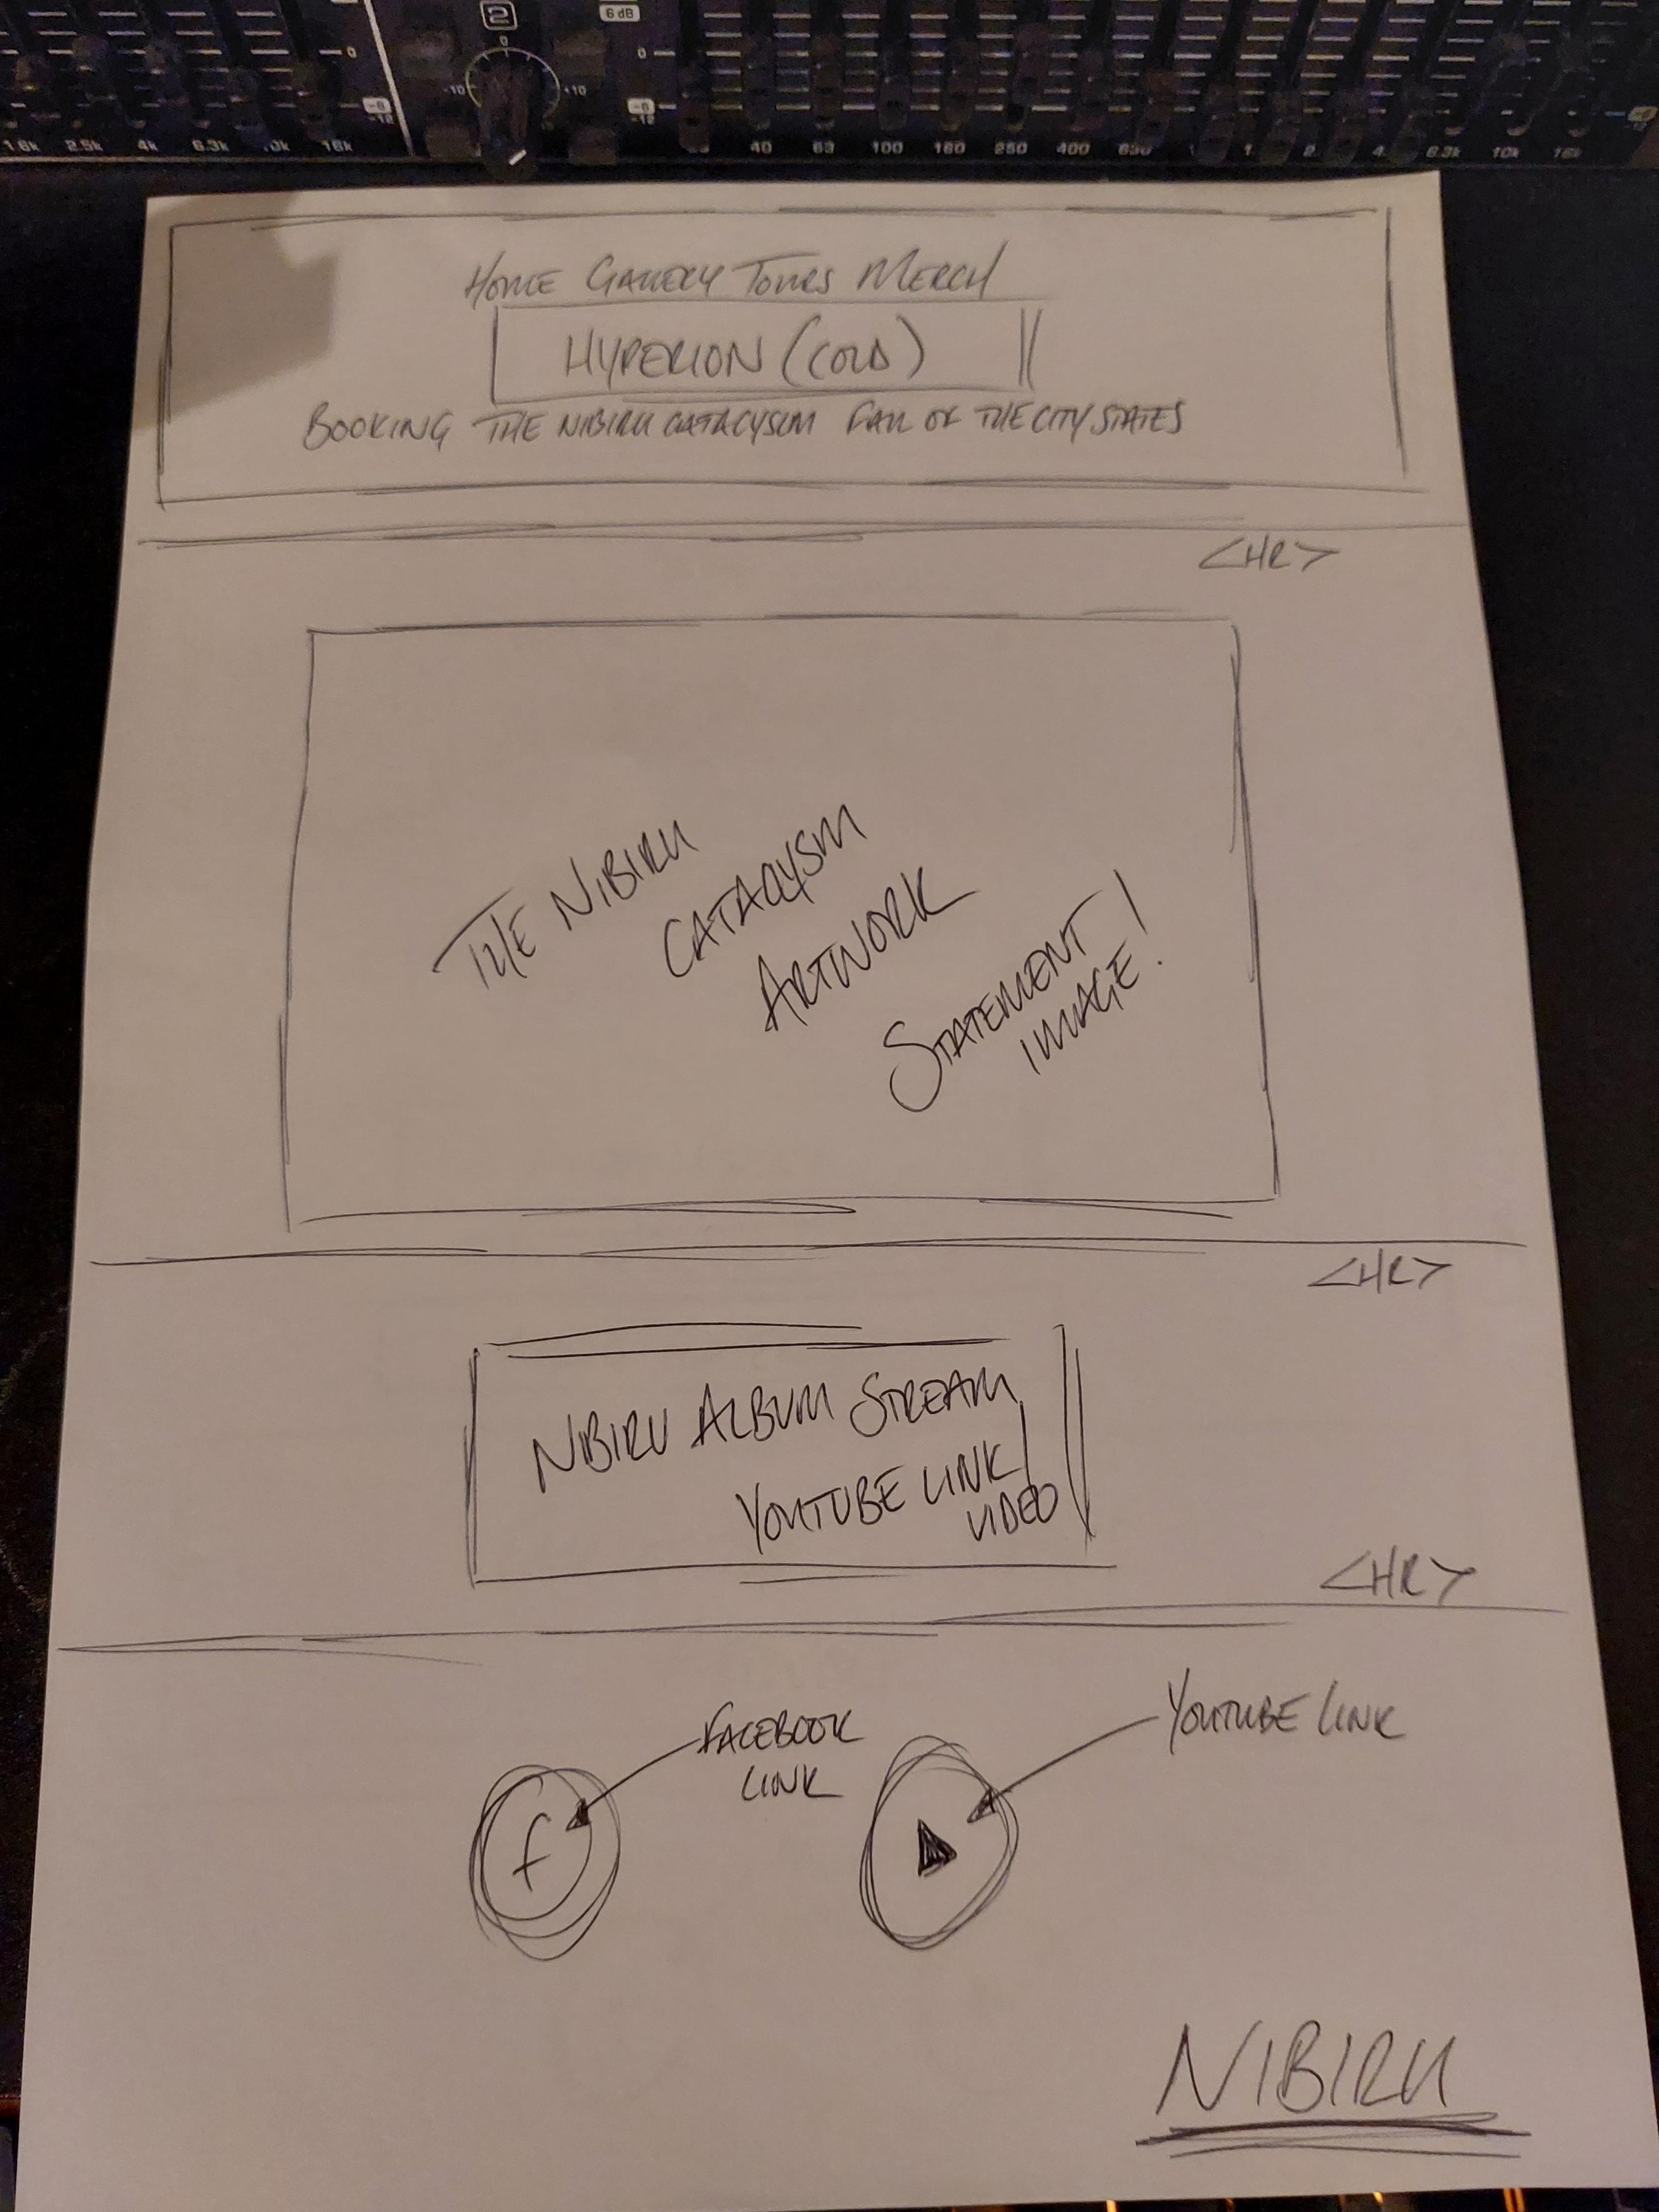 2
6 dB
0
-10 +10
0
0
-6
-12
-6
-12
1.6k 2.5k 4k 6.3k 10k 16k
40 63 100 160 250 400 630
6.3k 10k 16k
HOME GALLERY TOURS MERCH
HYPERION (COLD)
BOOKING THE NIBIRU CATACLYSM FALL OF THE CITY STATES
<HR>
THE NIBIRU
CATACLYSM
ARTWORK
STATEMENT
IMAGE!
<HR>
NIBIRU ALBUM STREAM
YOUTUBE LINK/
VIDEO
<HR>
FACEBOOK
LINK
YOUTUBE LINK
f
NIBIRU